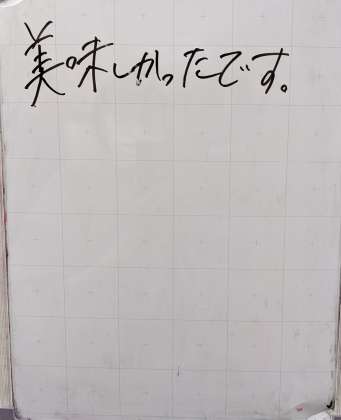 美味しかったです。